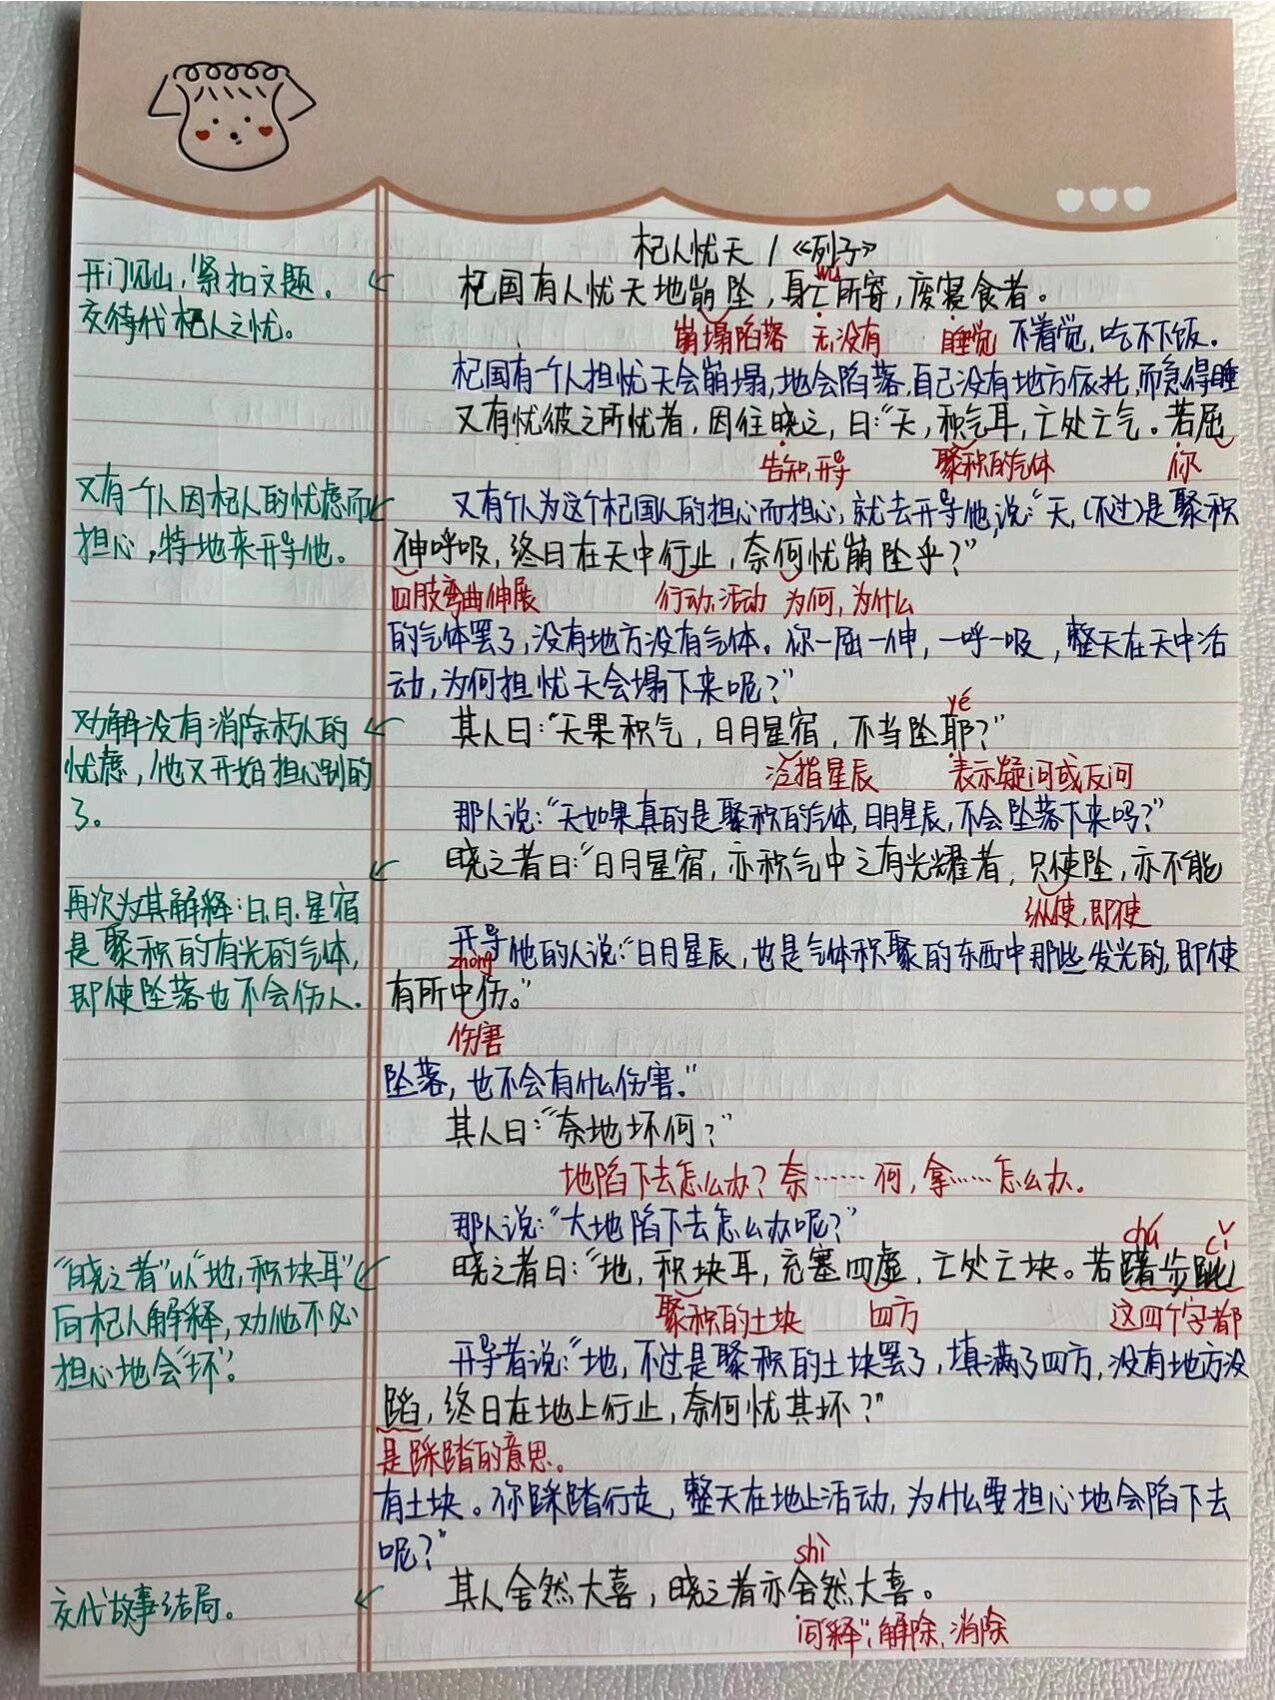 杞人忧天 / 《列子》
开门见山,紧扣文题。
交待代杞人之忧。
wú
杞国有人忧天地崩坠,身亡所寄,废寝食者。
崩塌陷落 无,没有 睡觉 不着觉,吃不下饭。
杞国有一个人担忧天会崩塌,地会陷落,自己没有地方依托,而急得睡
又有忧彼之所忧者,因往晓之,曰:“天,积气耳,亡处亡气。若屈
告知,开导 聚积的气体 你
又有一个人因杞人的忧虑而
担心,特地来开导他。
又有个人为这个杞国人的担心而担心,就去开导他,说:“天,(不过)是聚积
伸呼吸,终日在天中行止,奈何忧崩坠乎?”
四肢弯曲伸展 行动,活动 为何,为什么
的气体罢了,没有地方没有气体。你一屈一伸,一呼一吸,整天在天中活
动,为何担忧天会塌下来呢?”
劝解没有消除杞人的
忧虑,他又开始担心别的
了。
yé
其人曰:“天果积气,日月星宿,不当坠耶?”
泛指星辰 表示疑问或反问
那人说:“天如果真的是聚积的气体,日月星辰,不会坠落下来吗?”
晓之者曰:“日月星宿,亦积气中之有光耀者,只使坠,亦不能
纵使,即使
再次为其解释:日、月、星宿
是聚积的有光的气体,
即使坠落也不会伤人.
开导他的人说:“日月星辰,也是气体积聚的东西中那些发光的,即使
zhòng
有所中伤。”
伤害
坠落,也不会有什么伤害。”
其人曰:“奈地坏何?”
地陷下去怎么办?奈……何,拿……怎么办。
那人说:“大地陷下去怎么办呢?”
chú cǐ
“晓之者”以“地,积块耳”
向杞人解释,劝他不必
担心地会“坏”。
晓之者曰:“地,积块耳,充塞四虚,亡处亡块。若躇步跐
聚积的土块 四方 这四个字都
开导者说:“地,不过是聚积的土块罢了,填满了四方,没有地方没
蹈,终日在地上行止,奈何忧其坏?”
是踩踏的意思。
有土块。你踩踏行走,整天在地上活动,为什么要担心地会陷下去
呢?”
shì
交代故事结局。
其人舍然大喜,晓之者亦舍然大喜。
同“释”,解除,消除